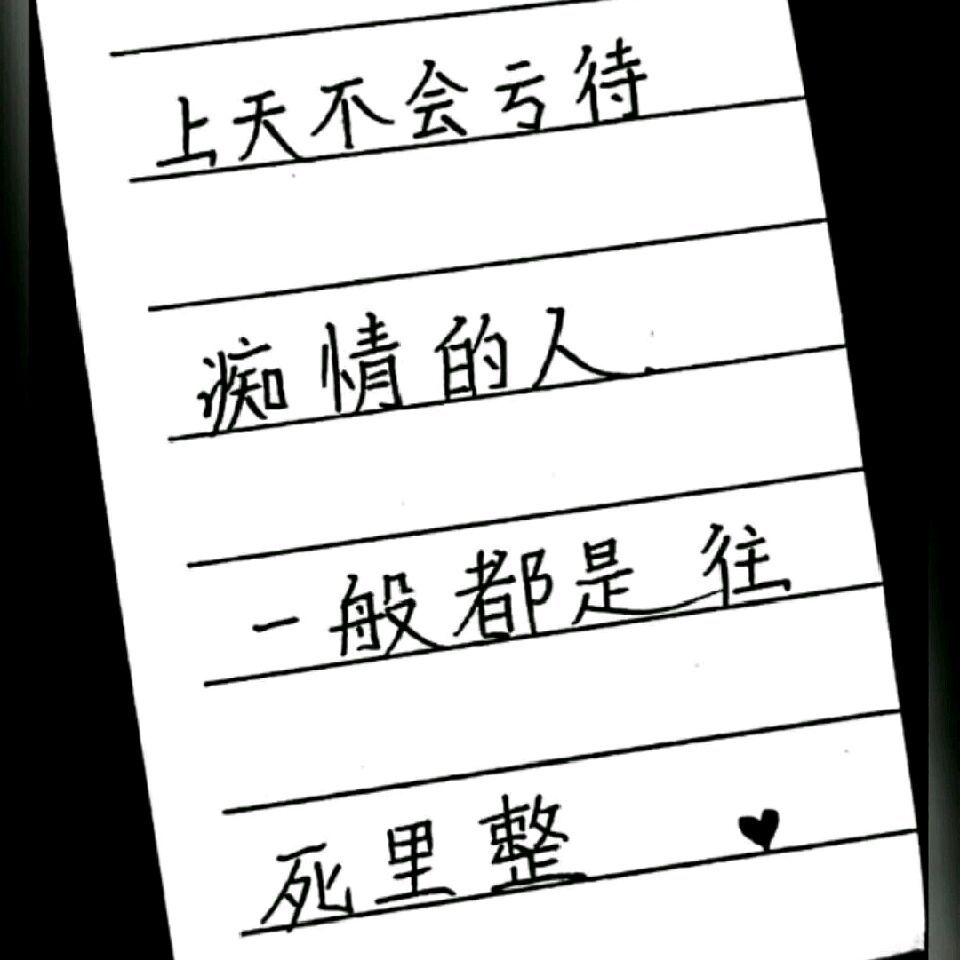 上天不会亏待
痴情的人.
一般都是往
死里整